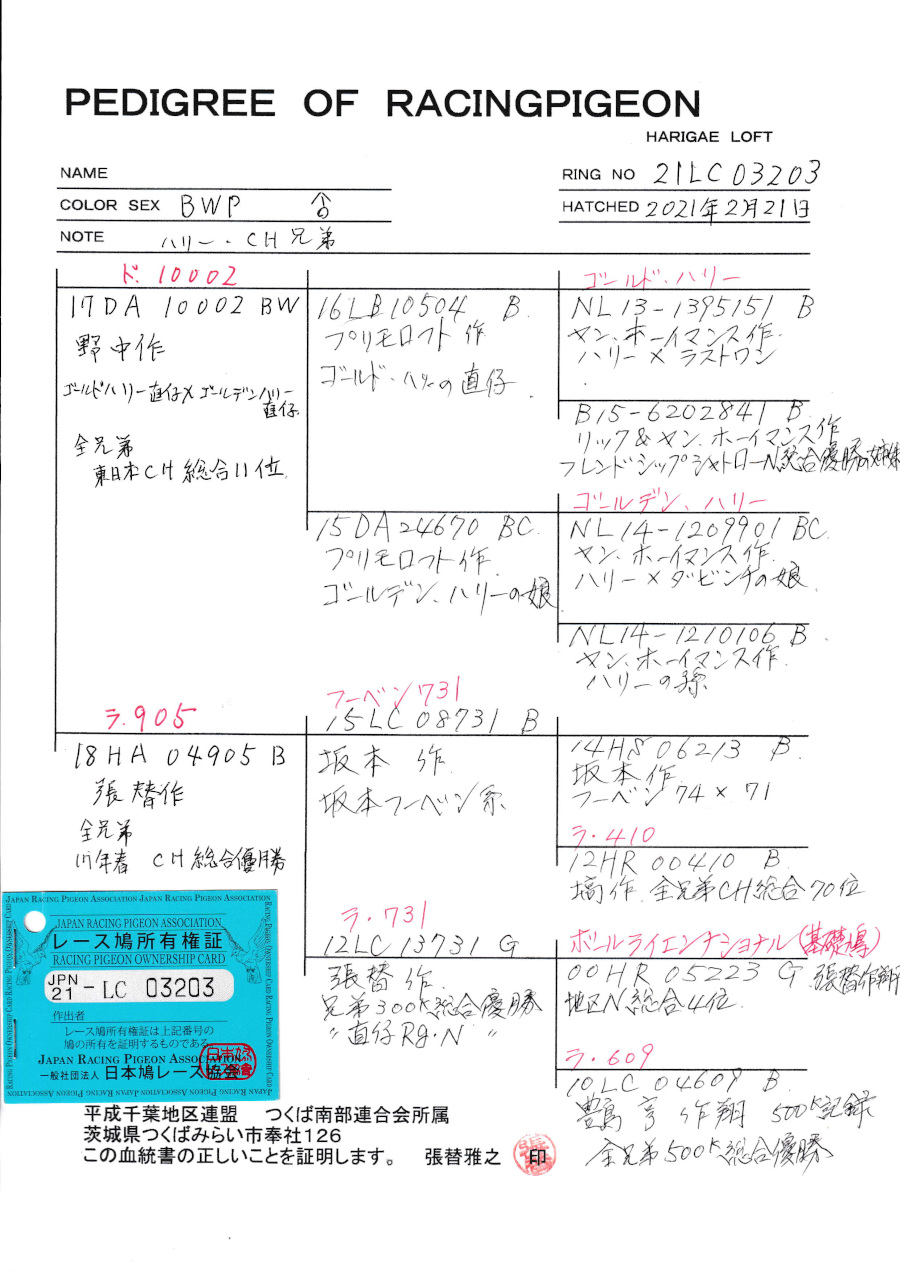 PEDIGREE OF RACINGPIGEON
HARIGAE LOFT
NAME
RING NO 21LC03203
COLOR SEX BWP ♂
HATCHED 2021年2月21日
NOTE ハリー・CH兄弟
ド.10002
17DA 10002 BW
野中作
ゴールドハリー直仔×ゴールデンハリー
直仔
全兄弟
東日本CH総合11位
ラ.905
18HA 04905 B
張替作
全兄弟
CH総合優勝
16LB10504 B.
プリモロフト作
ゴールド・ハリーの直仔
15DA24670 BC.
プリモロフト作
ゴールデン、ハリーの娘
フーベン731
15LC 08731 B
坂本 作
坂本フーベン系
ラ・731
12LC 13731 G
張替作
兄弟300K総合優勝
〃直仔Rg・N 〃
ゴールド・ハリー
NL13-1395151 B
ヤン、ホーイマンス作
ハリー×ラストワン
B15-6202841 B
リック&ヤン、ホーイマンス作
フレンドシップシャトローN総合優勝の姉妹
ゴールデン、ハリー
NL14-1209901 BC
ヤン、ホーイマンス作
ハリー×ダビンチの娘
NL14-1210106 B
ヤン、ホーイマンス作
ハリーの孫
14HS 06213 B
坂本作
フーベン74×71
ラ・410
12HR 00410 B
作 全兄弟CH総合70位
ポールライエンナショナル(基礎鳩)
00HR 05223 G 張替作翔
地区N総合4位
ラ・609
10LC 04609 B
作翔 500K記録
全兄弟500K総合優勝
JAPAN RACING PIGEON ASSOCIATION
レース鳩所有権証
RACING PIGEON OWNERSHIP CARD
JPN 21 - LC 03203
作出者
レース鳩所有権証は上記番号の
鳩の所有を証明するものである
JAPAN RACING PIGEON ASSOCIATION
一般社団法人 日本鳩レース協会
平成千葉地区連盟 つくば南部連合会所属
茨城県つくばみらい市奉社126
この血統書の正しいことを証明します。 張替雅之 印